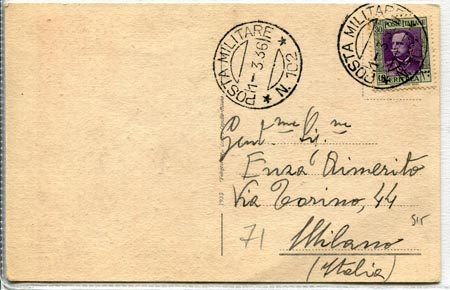 POSTA MILITARE
N. 102
1-3.36
POSTA MILITARE
POSTE ITALIANE
Gent.me Sig.ne
Enza Rimerito
Via Torino, 44
71
Milano
(Italia)